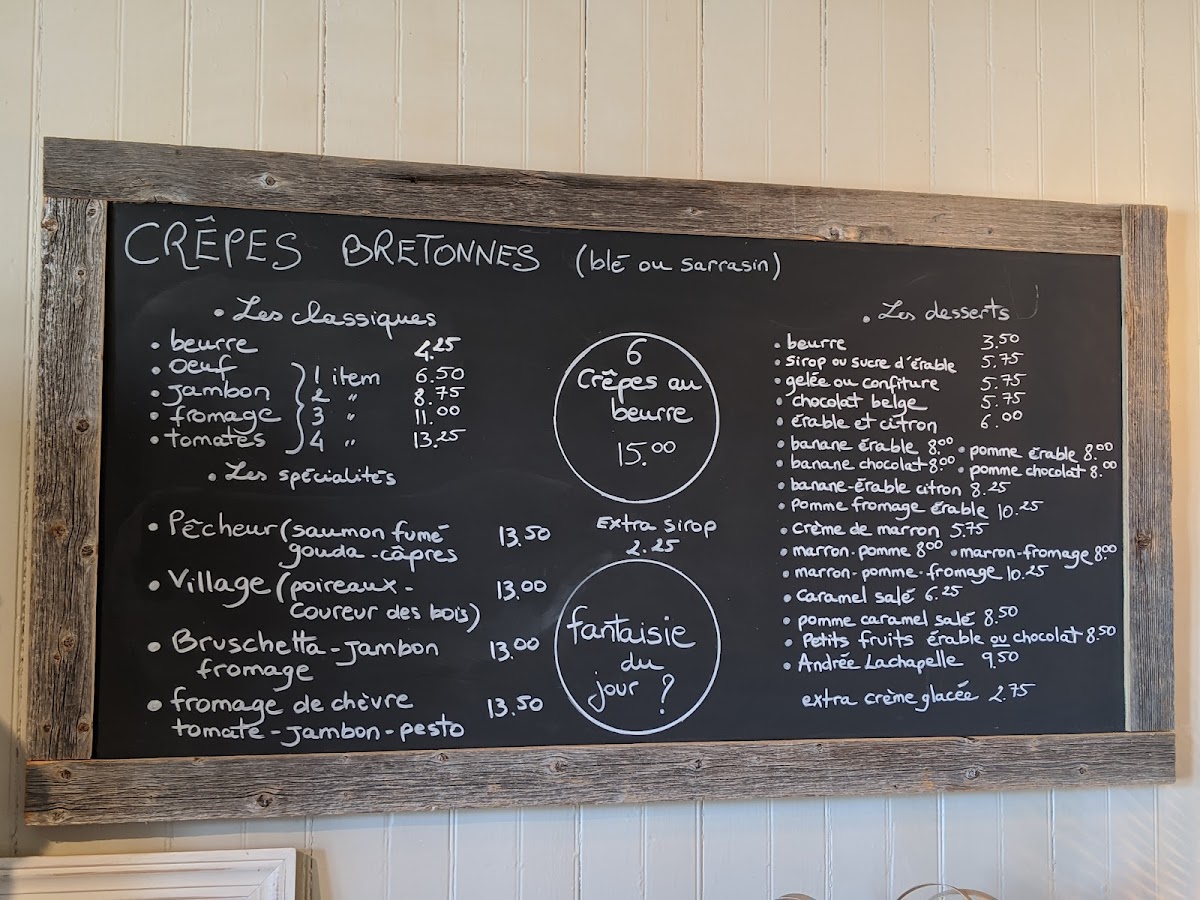 CRÊPES BRETONNES (blé ou sarrasin)
• Les classiques
• beurre 4.25
• oeuf
• jambon
• fromage
• tomates
1 item 6.50
2 " 8.75
3 " 11.00
4 " 13.25
• Les spécialités
• Pêcheur (saumon fumé 13.50
gouda-câpres
• Village (poireaux- 13.00
coureur des bois)
• Bruschetta-jambon 13.00
fromage
• fromage de chèvre 13.50
tomate-jambon-pesto
6
Crêpes au
beurre
15.00
Extra sirop
2.25
fantaisie
du
jour ?
• Les desserts
• beurre 3.50
• sirop ou sucre d'érable 5.75
• gelée ou confiture 5.75
• chocolat belge 5.75
• érable et citron 6.00
• banane érable 8.00 • pomme érable 8.00
• banane chocolat 8.00 • pomme chocolat 8.00
• banane-érable citron 8.25
• pomme fromage érable 10.25
• crème de marron 5.75
• marron-pomme 8.00 • marron-fromage 8.00
• marron-pomme-fromage 10.25
• caramel salé 6.25
• pomme caramel salé 8.50
• Petits fruits érable ou chocolat 8.50
• Andrée Lachapelle 9.50
extra crème glacée 2.75